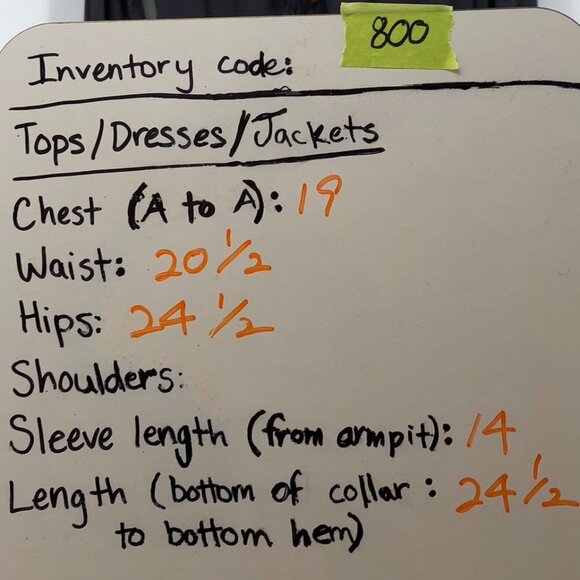 Inventory code: 800
Tops/Dresses/Jackets
Chest (A to A): 19
Waist: 20 1/2
Hips: 24 1/2
Shoulders:
Sleeve length (from armpit): 14
Length (bottom of collar : 24 1/2
to bottom hem)